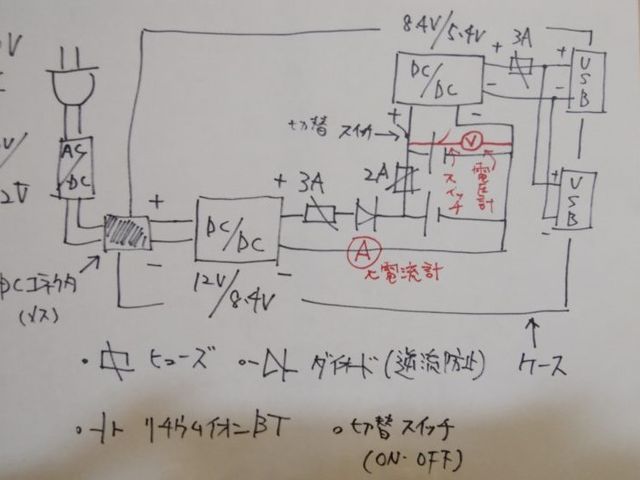 8.4V/5.4V
+ 3A
DC/DC
+
-
USB
+
-
切替スイッチ
+
-
V
スイッチ
電圧計
2A
AC/DC
+
-
DC/DC
+ 3A
-
A
電流計
12V/8.4V
DCコネクタ
(メス)
USB
+
-
ケース
・ヒューズ
・ダイオード(逆流防止)
・リチウムイオンBT
・切替スイッチ
(ON・OFF)